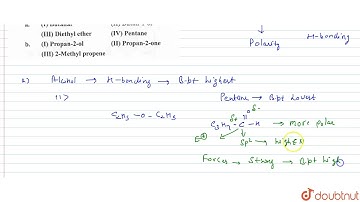 a. (I) Butanal (II) Butan-1-ol
(III) Diethyl ether (IV) Pentane
b. (I) Propan-2-ol (II) Propan-2-one
(III) 2-Methyl propene
Polarity H-bonding
a) Alcohol → H-bonding → B.pt highest
11> Pentane → B.pt lowest
C2H5 - O - C2H5
O δ-
δ+
C3H7 - C - H → More polar
sp2 → High EN
Forces → Strong → B.pt high
doubtnut